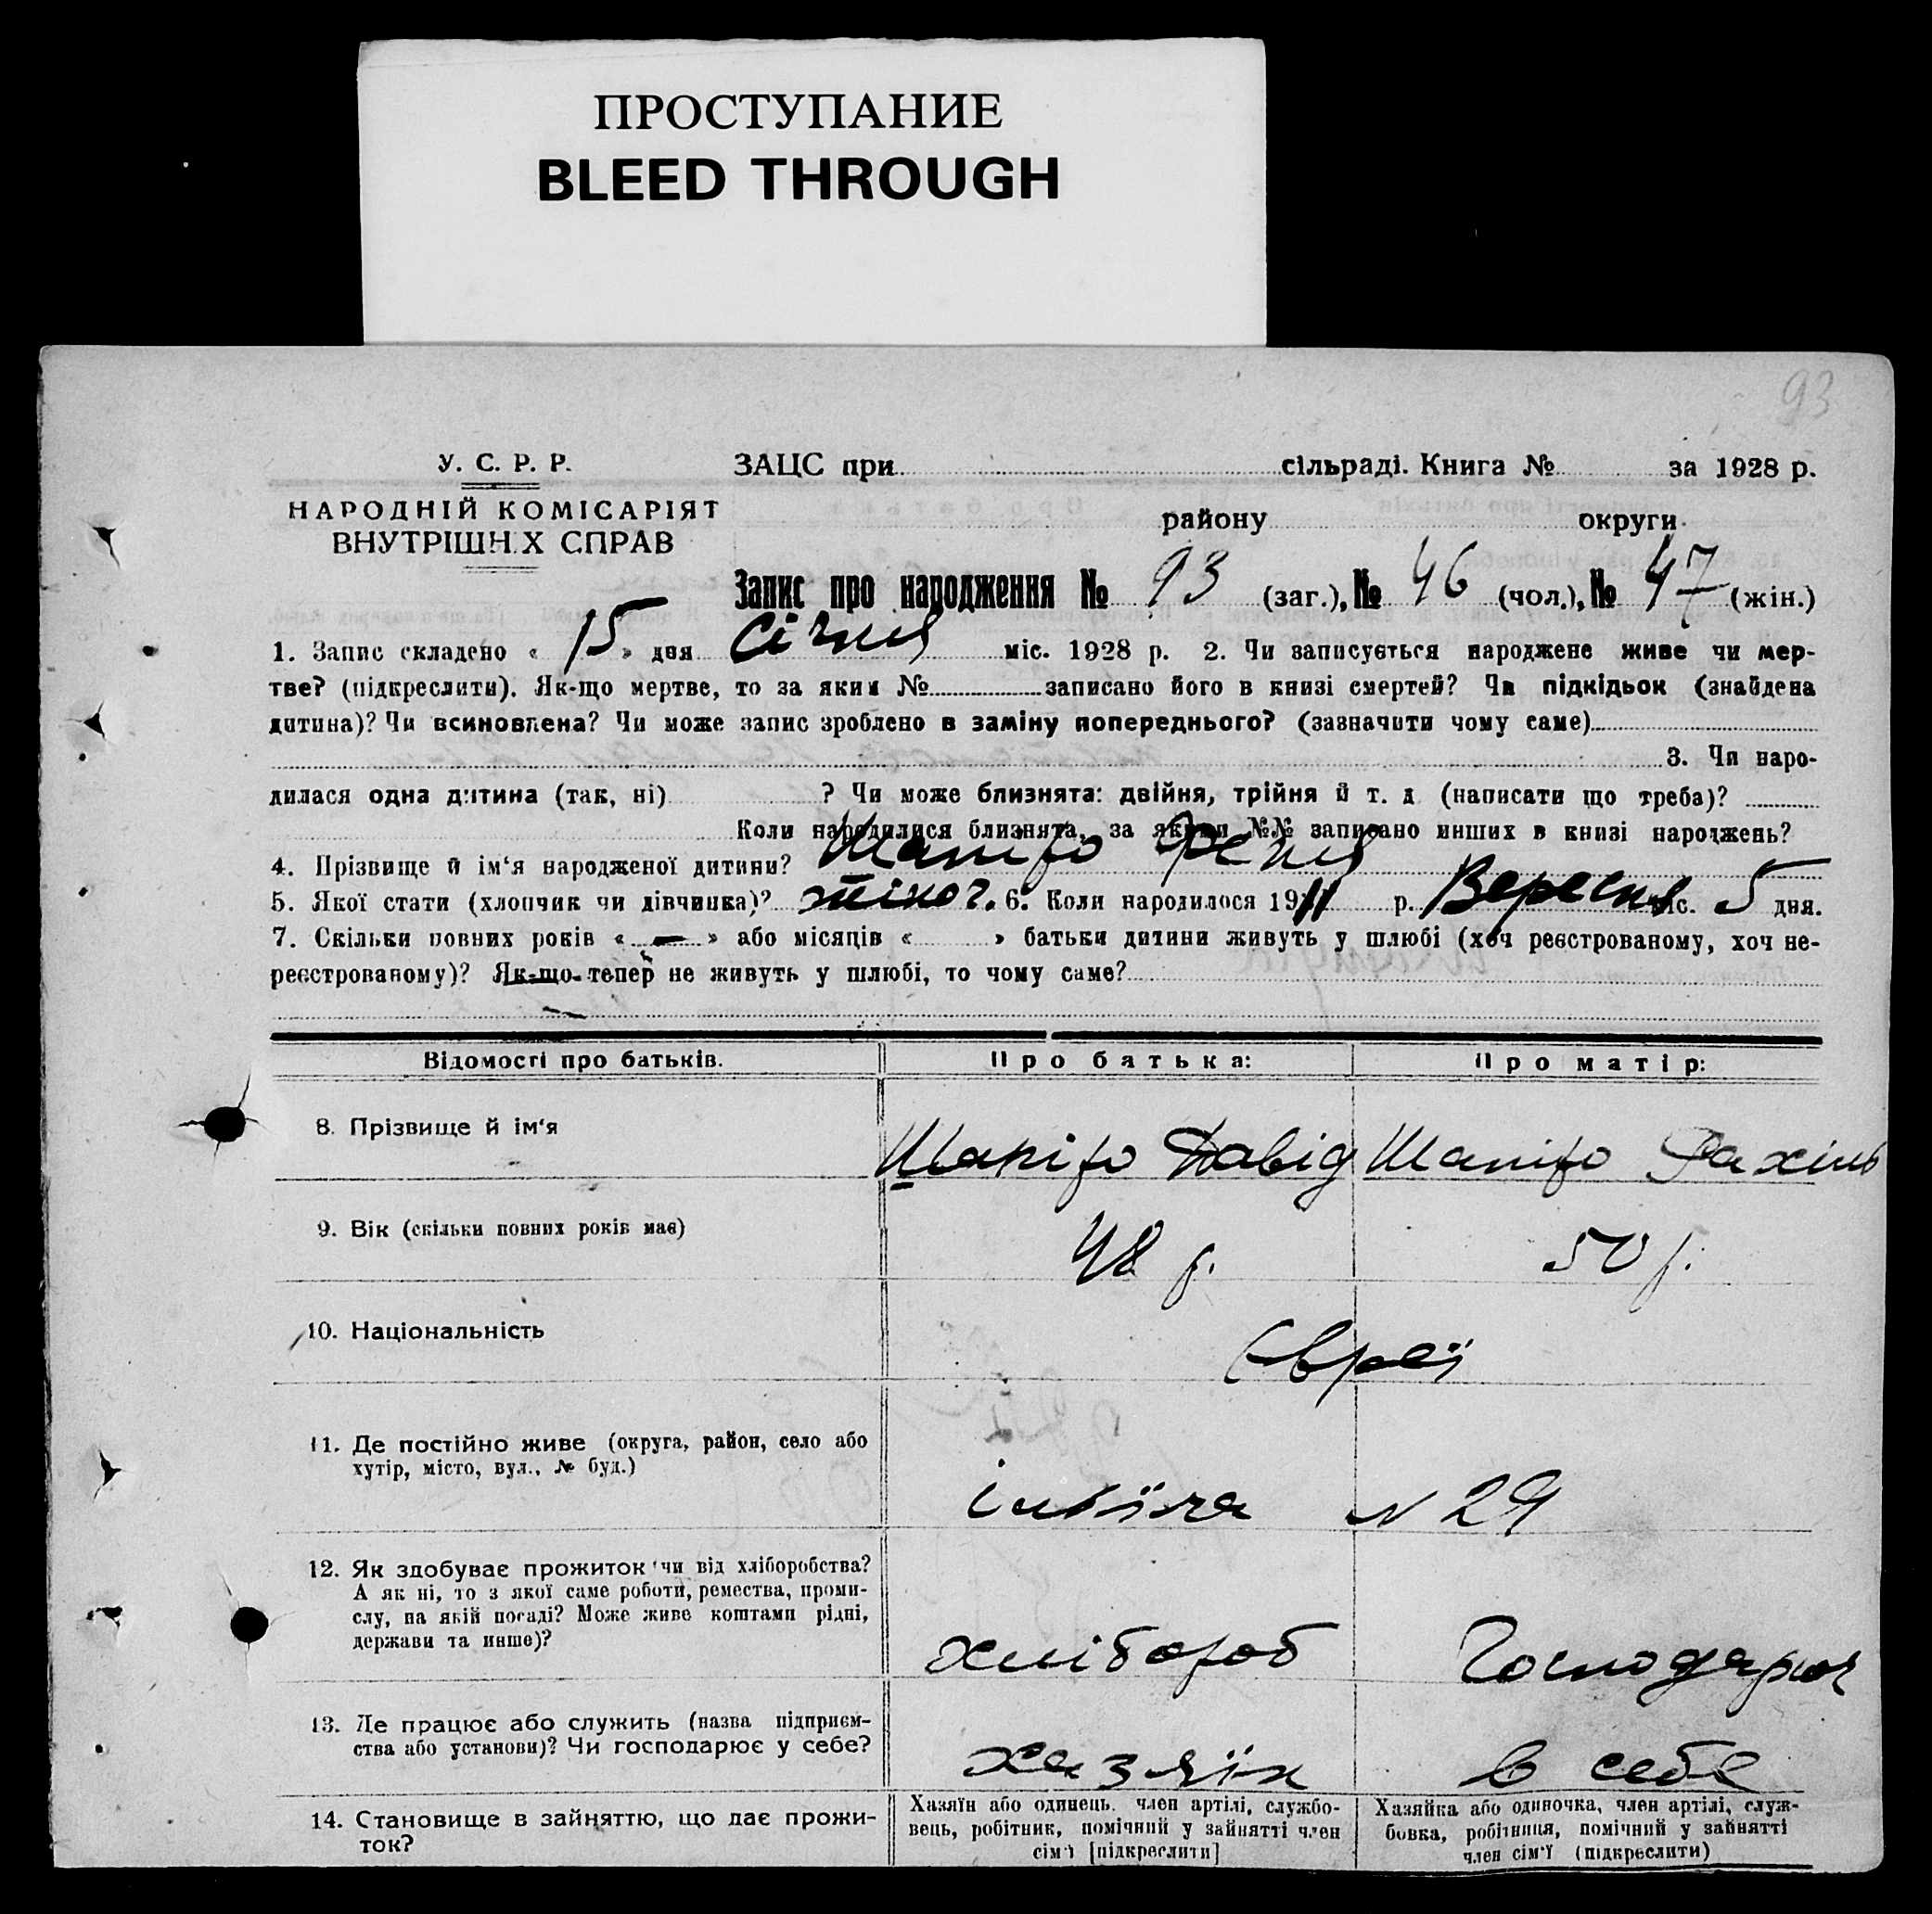 ПРОСТУПАНИЕ
BLEED THROUGH
93
У. С. Р. Р.
НАРОДНІЙ КОМІСАРІЯТ
ВНУТРІШНІХ СПРАВ
ЗАЦС при сільраді. Книга № за 1928 р.
району округи
Запис про народження № 93 (заг.), № 46 (чол.), № 47 (жін.)
1. Запис складено « 15 » дня Січня міс. 1928 р. 2. Чи записується народжене живе чи мер-
тве? (підкреслити). Як-що мертве, то за яким № записано його в книзі смертей? Чи підкідьок (знайдена
дитина)? Чи всиновлена? Чи може запис зроблено в заміну попереднього? (зазначити чому саме)
3. Чи наро-
дилася одна дитина (так, ні) ? Чи може близнята: двійня, трійня й т. д. (написати що треба)?
Коли народилися близнята, за якими №№ записано инших в книзі народжень?
4. Прізвище й ім‘я народженої дитини? Шапіро Феня
5. Якої стати (хлопчик чи дівчинка)? жіноч. 6. Коли народилося 1911 р. Вересня міс. 5 дня.
7. Скільки повних років « — » або місяців « » батьки дитини живуть у шлюбі (хоч реєстрованому, хоч не-
реєстрованому)? Як-що тепер не живуть у шлюбі, то чому саме?
Відомості про батьків. Про батька: Про матір:
8. Прізвище й ім‘я Шапіро Давід Шапіро Рахіль
9. Вік (скільки повних років має) 48 р. 50 р.
10. Національність Євреї
11. Де постійно живе (округа, район, село або
хутір, місто, вул., № буд.)
N 29
12. Як здобуває прожиток чи від хліборобства?
А як ні, то з якої саме роботи, ремества, проми-
слу, на якій посаді? Може живе коштами рідні,
держави та инше)?
хлібороб Господарюя
13. Де працює або служить (назва підприєм-
ства або установи)? Чи господарює у себе?
хазяїн в себе
14. Становище в зайняттю, що дає прожи-
ток?
Хазяїн або одинець, член артілі, службо-
вець, робітник, помічний у зайнятті член
сім‘ї [підкреслити]
Хазяйка або одиночка, член артілі, служ-
бовка, робітниця, помічний у зайнятті
член сім‘ї (підкреслити)